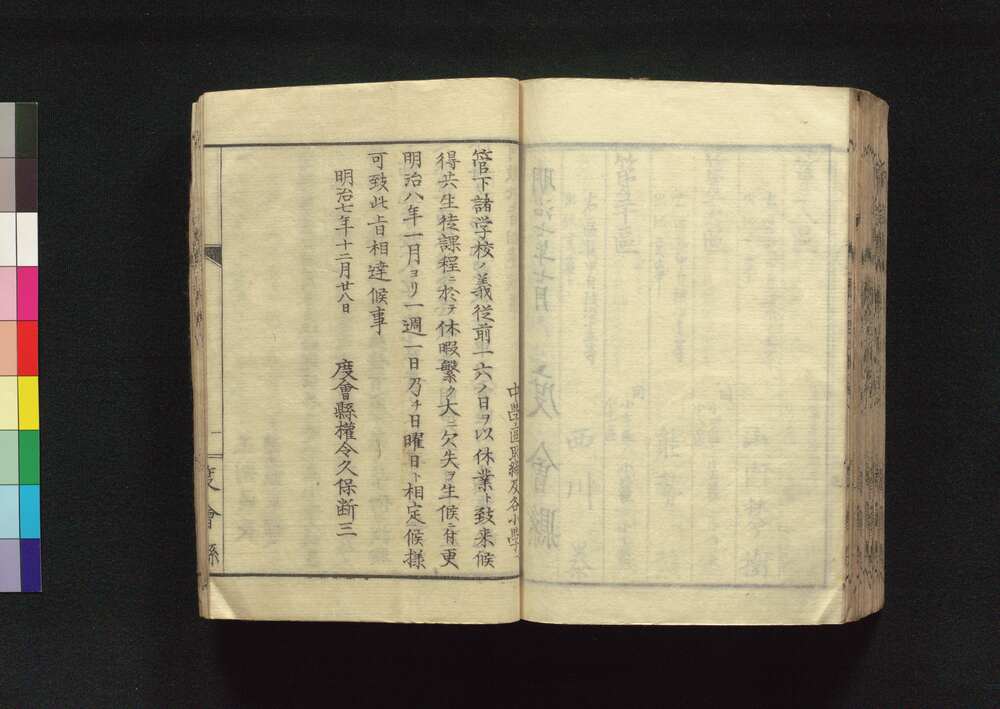 中学区取締及各小学
管下諸学校ノ義従前一六ノ日ヲ以休業ト致来候
得共生徒課程ニ於テ休暇繁ク大ニ欠失ヲ生候ニ付更
明治八年一月ヨリ一週一日乃チ日曜日ト相定候様
可致此旨相達候事
明治七年十二月廿八日
度會縣權令久保断三
一
度會縣